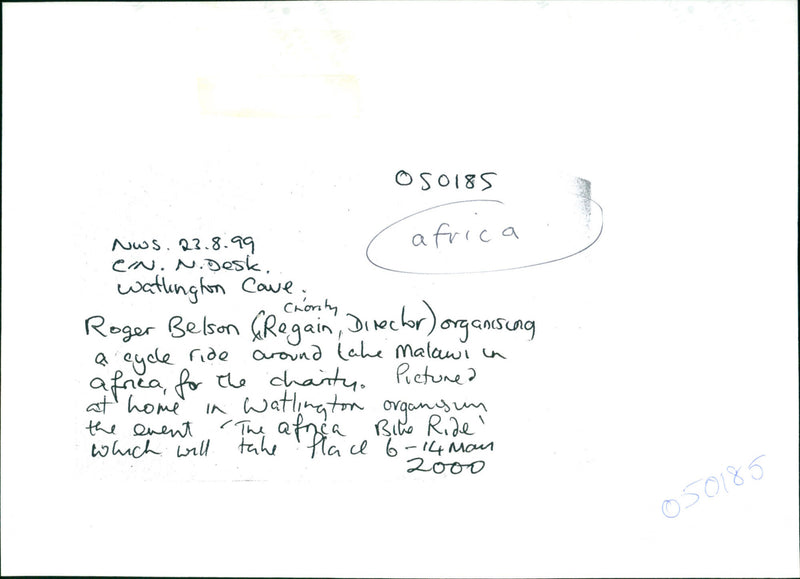 050185
africa
NWS. 23.8.99
C/N. N. Desk.
Watlington Cave.
Charity
Roger Belson (Regain, Director) organising
a cycle ride around Lake Malawi in
africa, for the charity. Pictured
at home in Watlington organising
the event 'The africa Bike Ride'
which will take place 6-14 May
2000
050185